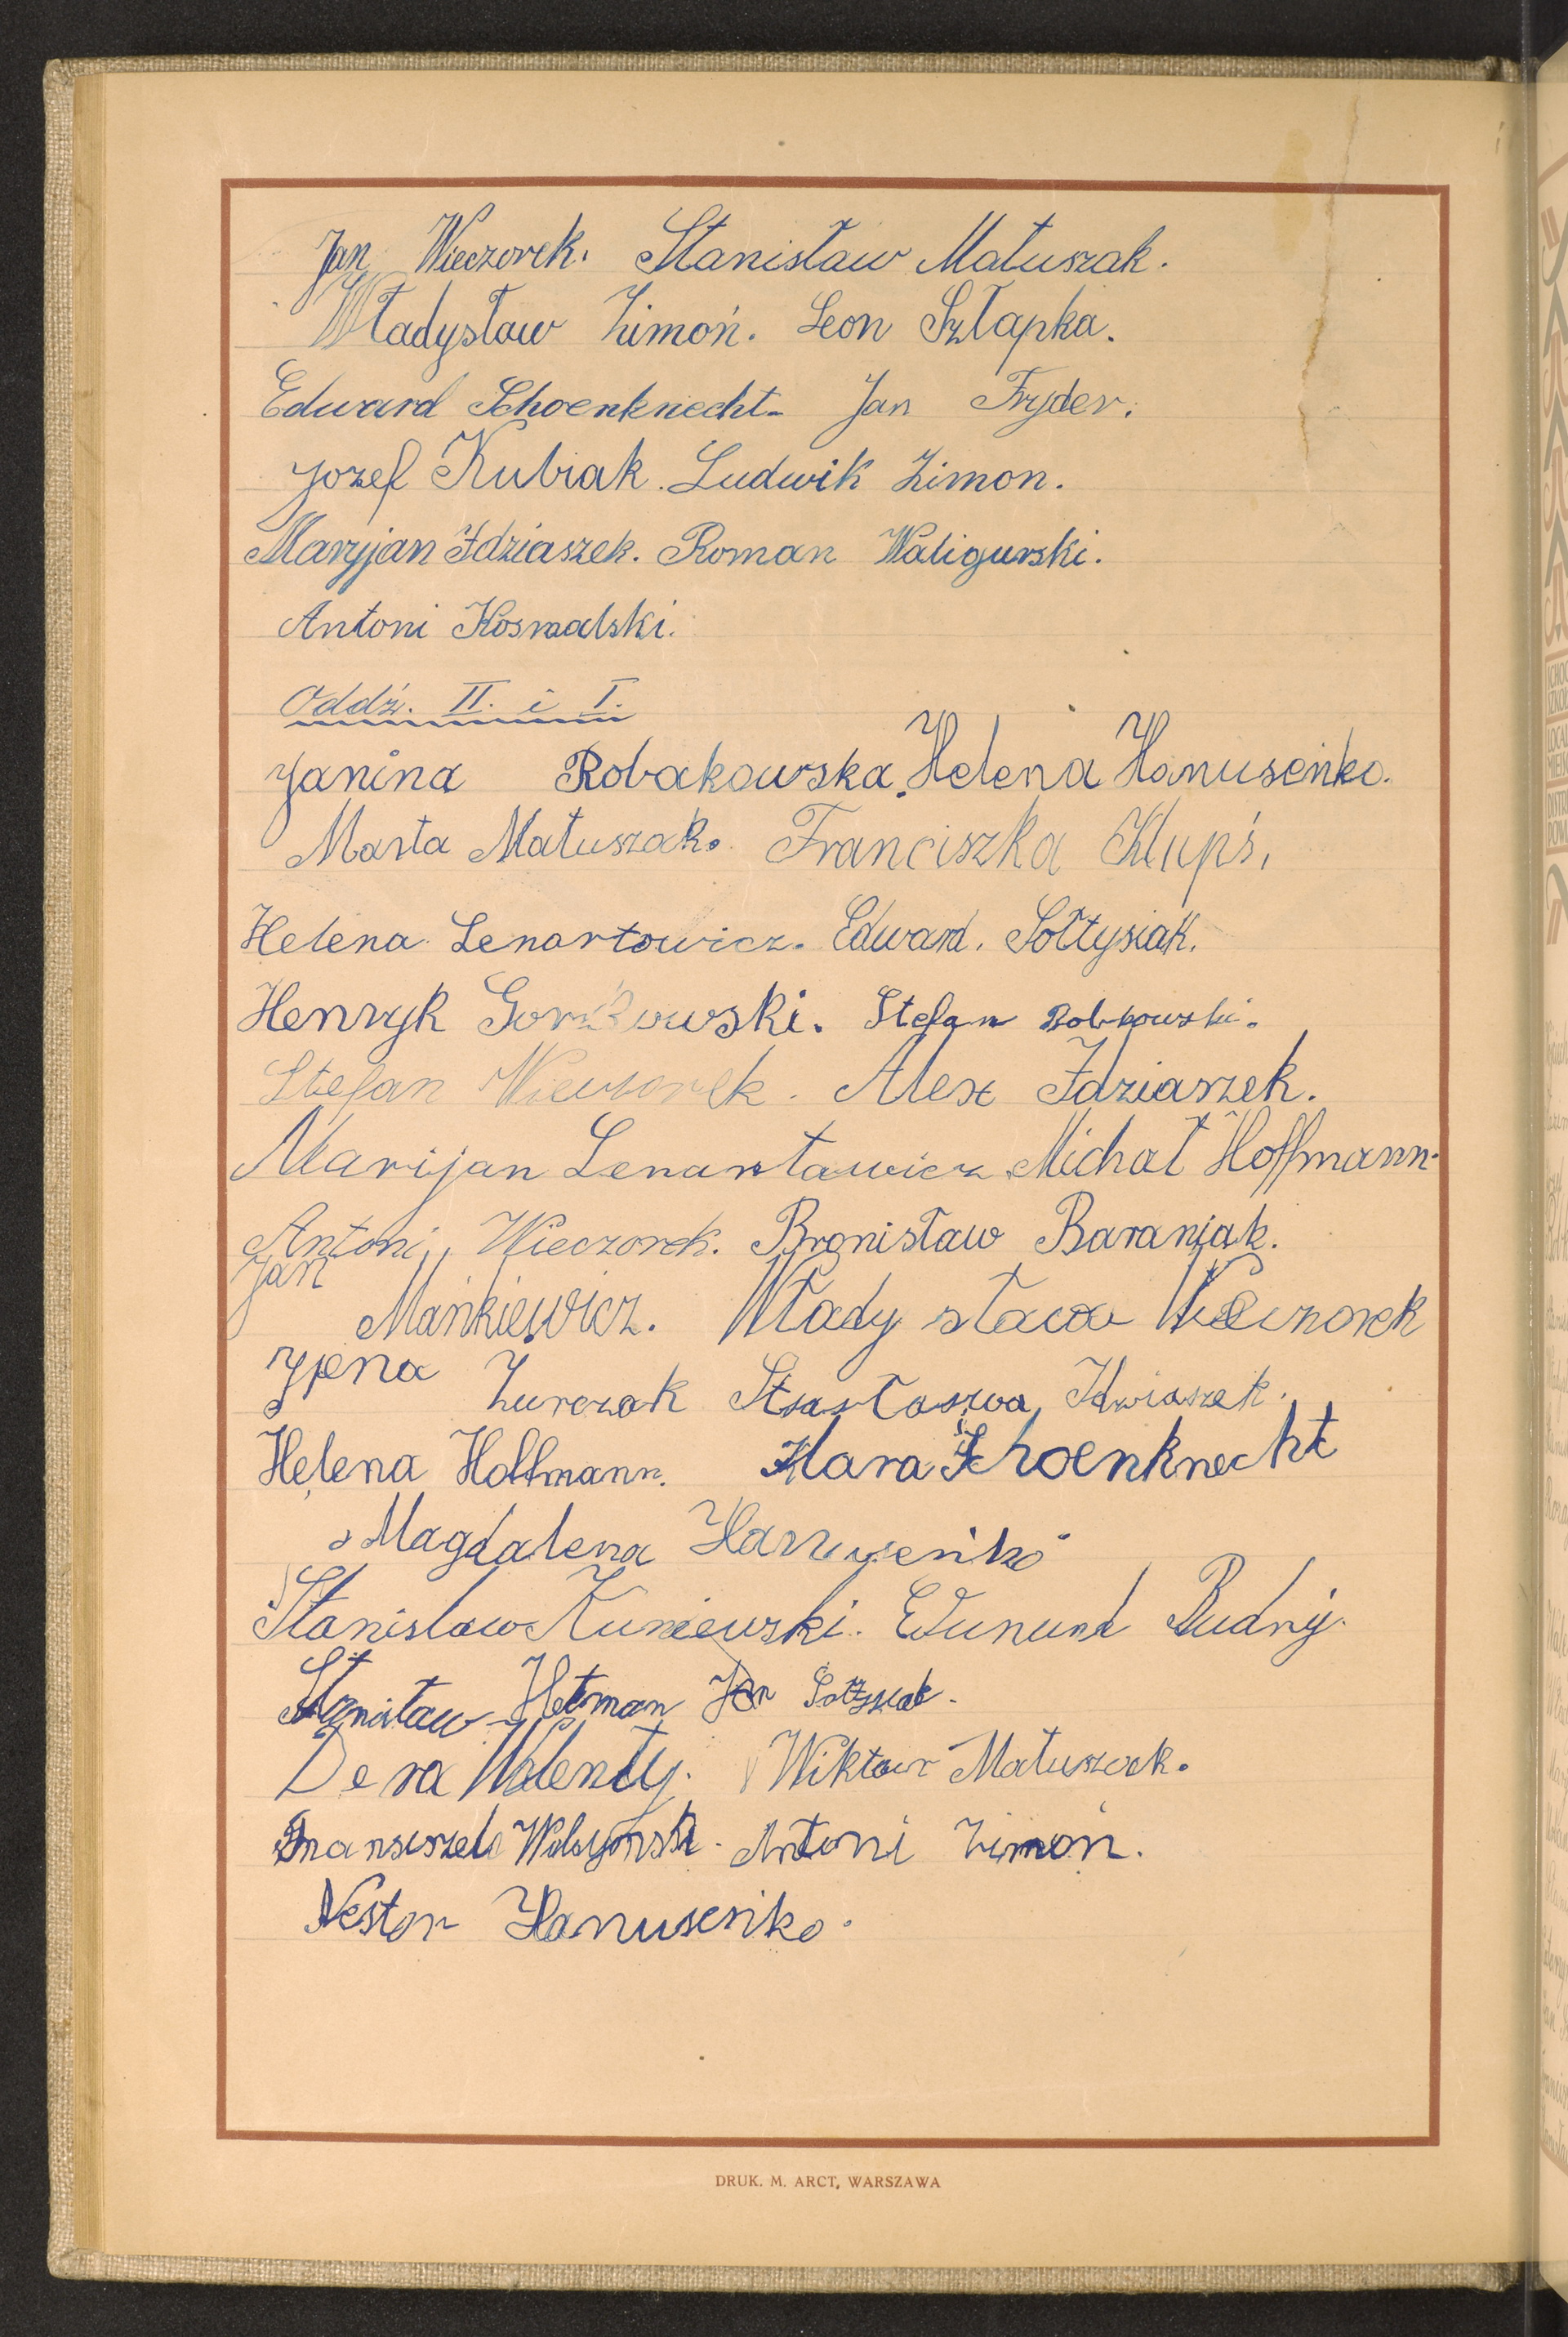 Jan Wieczorek. Stanisław Matuszak.
Władysław Zimoń. Leon Szłapka.
Edward Schoenknecht. Jan Fryder.
Jozef Kubiak. Ludwik Zimon.
Maryjan Idziaszek. Roman Waligurski.
Antoni Kosmalski.
Oddź. II. i I.
Janina Robakowska. Helena Hanusenko.
Marta Matuszak. Franciszka Klupś.
Helena Lenartowicz. Edward. Sołtysiak.
Henryk Stefan Bobkowski.
Stefan Wieczorek. Alex Idziaszek.
Marijan Lenartawicz. Michał Hoffmann.
Antoni Wieczorek. Bronisław Baraniak.
Jan
Mańkiewicz. Władysława Wieczorek
Żurczak Idziaszek.
Helena Hoffmann. Klara Schoenknecht
Magdalena Hanusenko
Stanislaw Kuniewski. Edmund Budny.
Stanisław Hetman Jan Sołtysiak.
Dera Walenty. Wiktor Matuszak.
Antoni Zimoń.
Nestor Hanusenko.
DRUK. M. ARCT, WARSZAWA